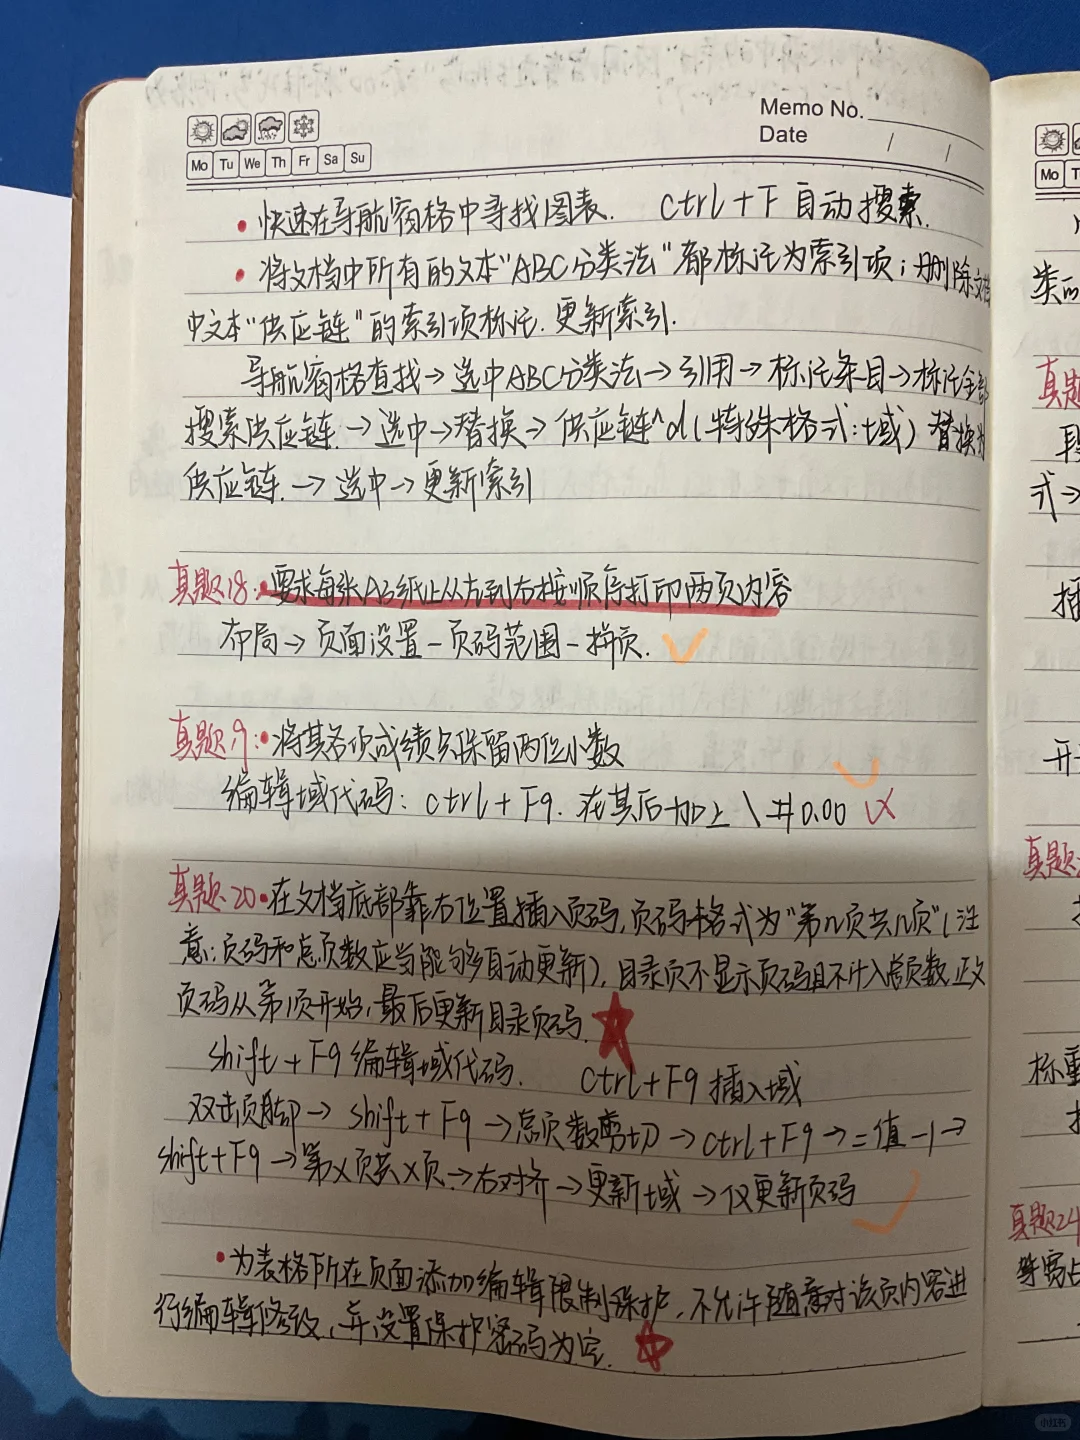 Memo No.
Date / /
Mo Tu We Th Fr Sa Su
• 快速在导航窗格中寻找图表. Ctrl+F 自动搜索.
• 将文档中所有的文本"ABC分类法"都标记为索引项；删除文档
中文本"供应链"的索引项标记.更新索引.
导航窗格查找→选中ABC分类法→引用→标记条目→标记全部
搜索供应链.→选中→替换→供应链^d(特殊格式:域)替换为
供应链.→选中→更新索引
真题18:•要求每张A3纸上从左到右按顺序打印两页内容
布局→页面设置-页码范围-拼页.
真题19:•将其各项成绩点保留两位小数
编辑域代码: ctrl+F9. 在其后加上 \#0.00
真题20•在文档底部靠右位置插入页码,页码格式为"第n页共n页"(注
意:页码和总页数应当能够自动更新),目录页不显示页码且不计入总页数,正文
页码从第1页开始,最后更新目录页码.
shift+F9编辑域代码. Ctrl+F9插入域
双击页脚→shift+F9→总页数剪切→ctrl+F9→=值-1→
shift+F9→第X页共X页→右对齐→更新域→仅更新页码
•为表格所在页面添加编辑限制保护,不允许随意对该页内容进
行编辑修改,并设置保护密码为空.
Mo
类
真题
式→
真题
真题24
小红书